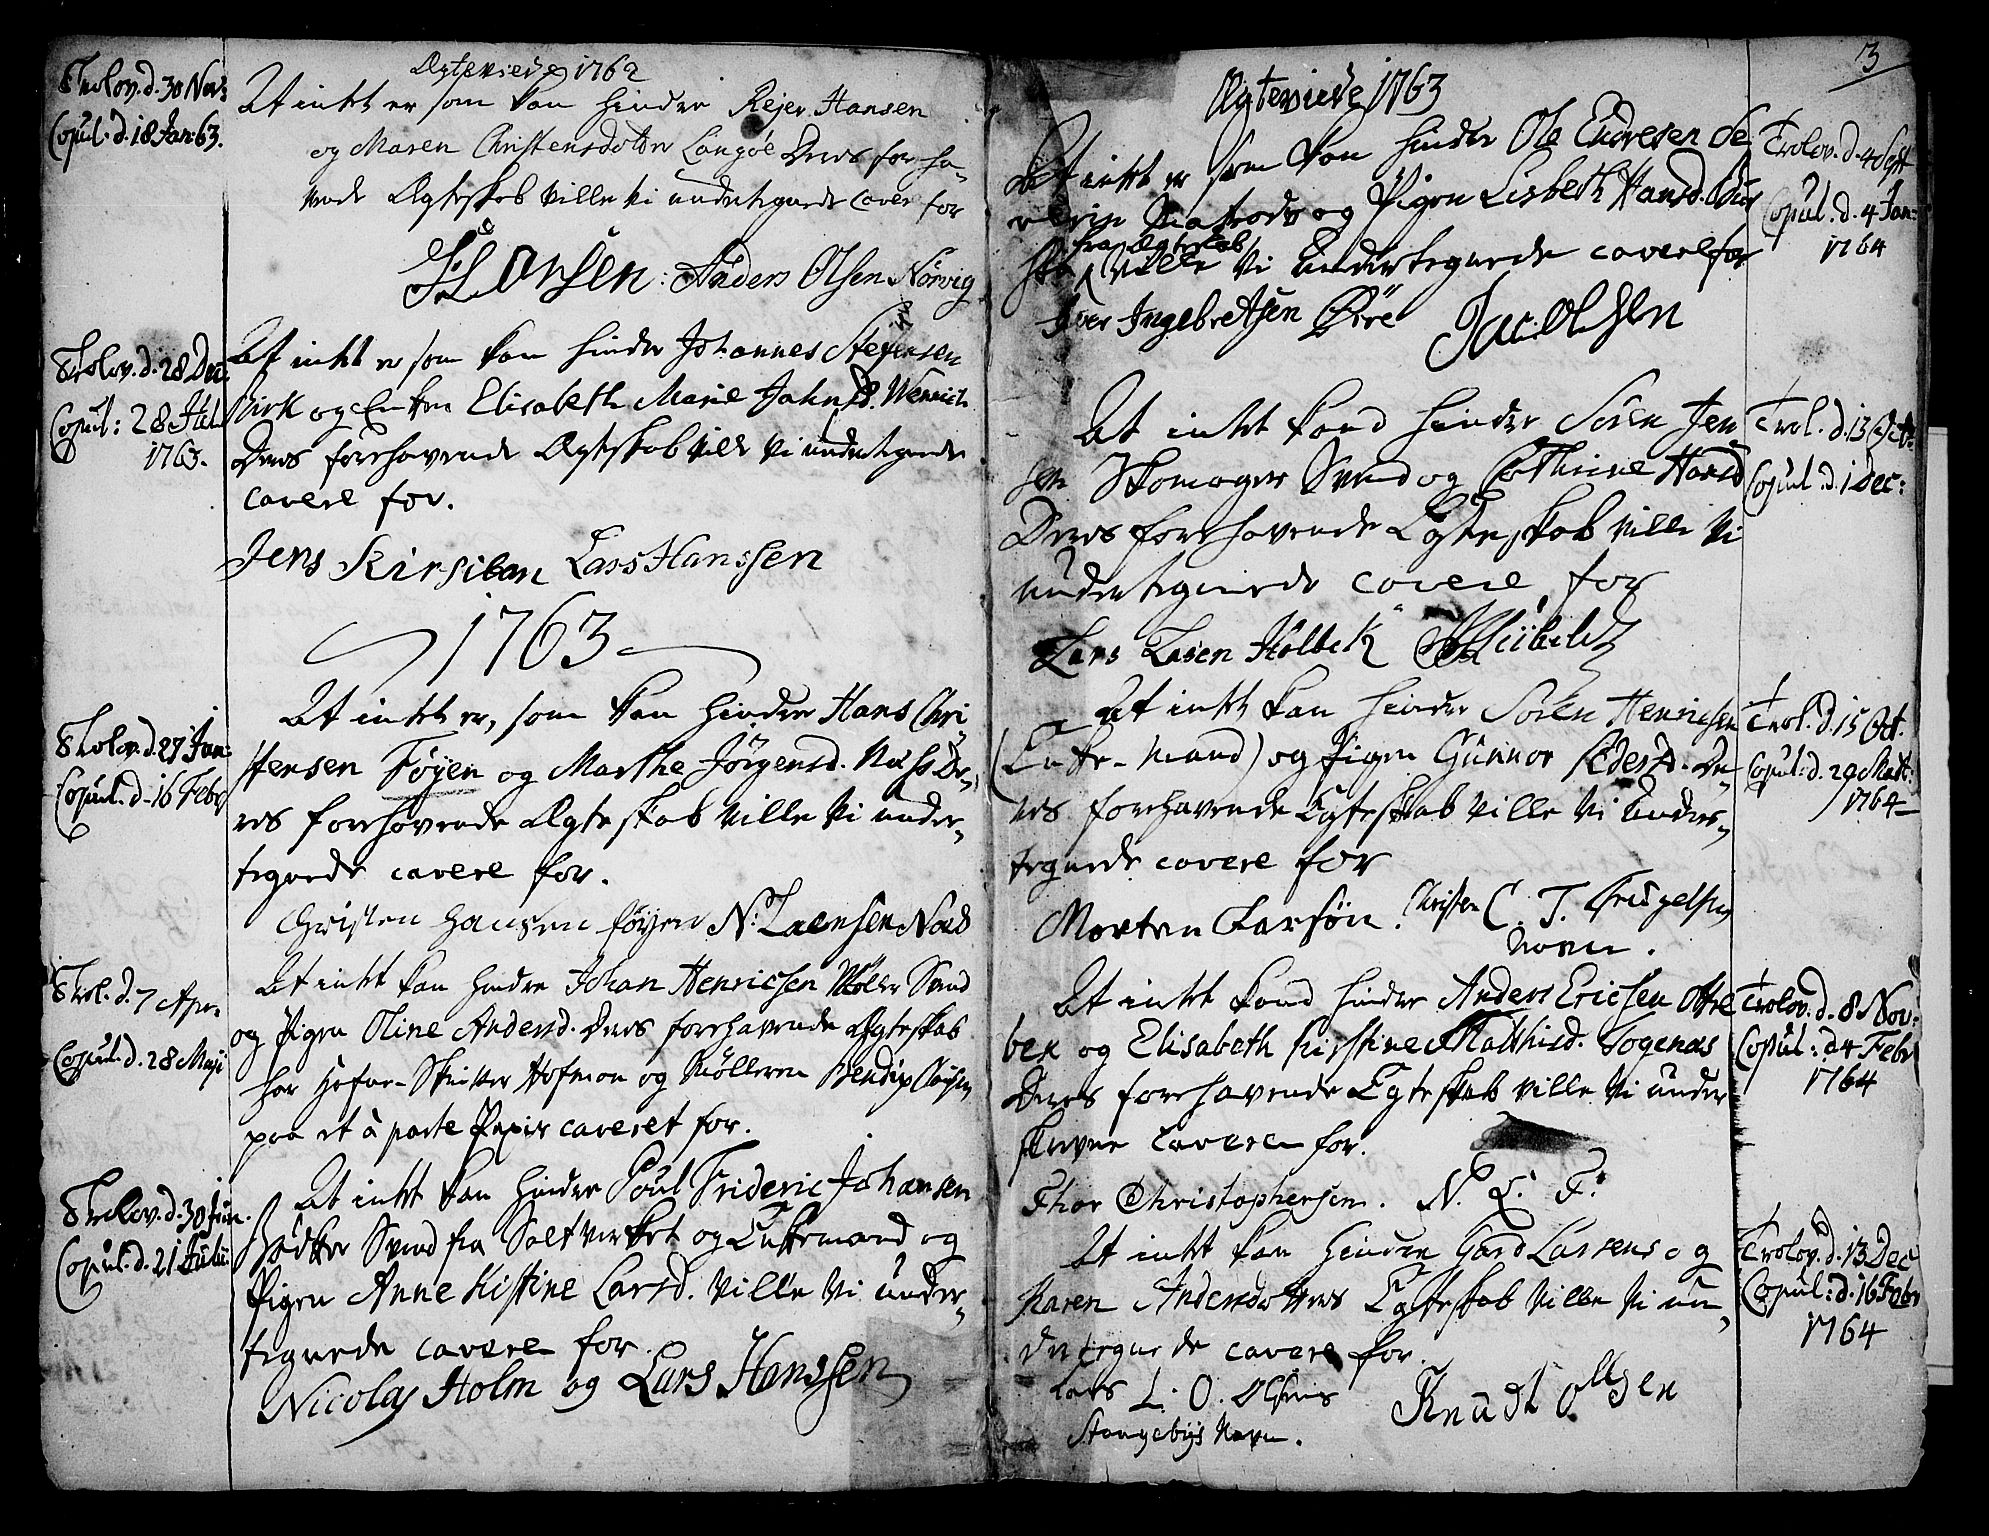 Ægteviede 1762
Trolov. d. 30 Nov:
Copul: d. 18 Jan: 63.
At intet er som kan hindre Rejer Hansen
og Maren Christensdotter Langöe Deres forha-
vende Ægteskab ville vi undertegnede cavere for
Anders Olsen Nörvig
Trolov. d. 28 Dec:
Copul: 28 Jul.
1763.
At intet er som kan hindre Johannes Stefensen
Kirk og Enken Elisabeth Marie Johnsd. Wenrich
Deres forehavende Ægteskab ville vi undertegnede
cavere for.
Jens Lars Hanssen
1763
Trolov. d. 27 Jan:
Copul. d. 16 Febr
At intet er, som kan hindre Hans Chri-
stensen Föyen og Marthe Jörgensd. De-
res forehavende Ægteskab ville vi under-
tegnede cavere for.
Christen Hansen föyen N: Laensen
Trol. d. 7 Apr.
Copul. d. 28 Maji
At intet kan hindre Johan Henricsen Möller Svend
og Pigen Oline Andersd. Deres forehavende Ægteskab
har Hofman og Mölleren Bendix
paa et à parte Papir caveret for.
Trolov. d. 30 Jun.
Copul. d. 21 Julii
At intet kan hindre Poul Frideric Johansen
Bödker Svend fra Saltverket og Enkemand og
Pigen Anne Kistine Larsd. ville vi under-
tegnede cavere for.
Nicolay Holm og Lars Hanssen
3
Ægteviede 1763
Trolov. d. 4 Sept
Copul. d. 4 Jan:
1764
At intet er som kan hindre Ole Endresen
og Pigen Lisbeth Hansd.
ville vi undertegnede cavere for
Iver Ingebretsen Öre Jac: Olsen
Trol. d. 13 Oct:
Copul: d. 1 Dec:
At intet kand hindre Sören Jen
sen Skomager Svend og Cathrine Hansd
Deres forehavende Egteskab ville vi
undertegnede cavere for
Lars Lasen Holbek
Trol. d. 15 Oct.
Copul: d. 29 Mart:
1764
At intet kan hindre Sören Henricsen
(Enke-Mand) og Pigen Gunnor Pedersd. De
res forehavende Egteskab ville vi under-
tegnede cavere for
Morten Larsön. Christen C. T. Trugelsens
Navn.
Trolov. d. 8 Nov:
Copul: d 4 Febr
1764
At intet kand hindre Anders Ericsen Otte
bek og Elisabeth Kirstine Matthisd. Togenæs
Deres forehavende Egteskab ville vi under
skrevne cavere for.
Thor Christophersen. N. L. F:
Trolov. d. 13 Dec
Copul: d. 16 Febr
1764
At intet kan hindre Gard Larsens og
Karen Andersdotters Egteskab ville vi un
dertegnede cavere for.
Lars L. O. Olsens Knudt Olsen
Stangebÿs Navn.